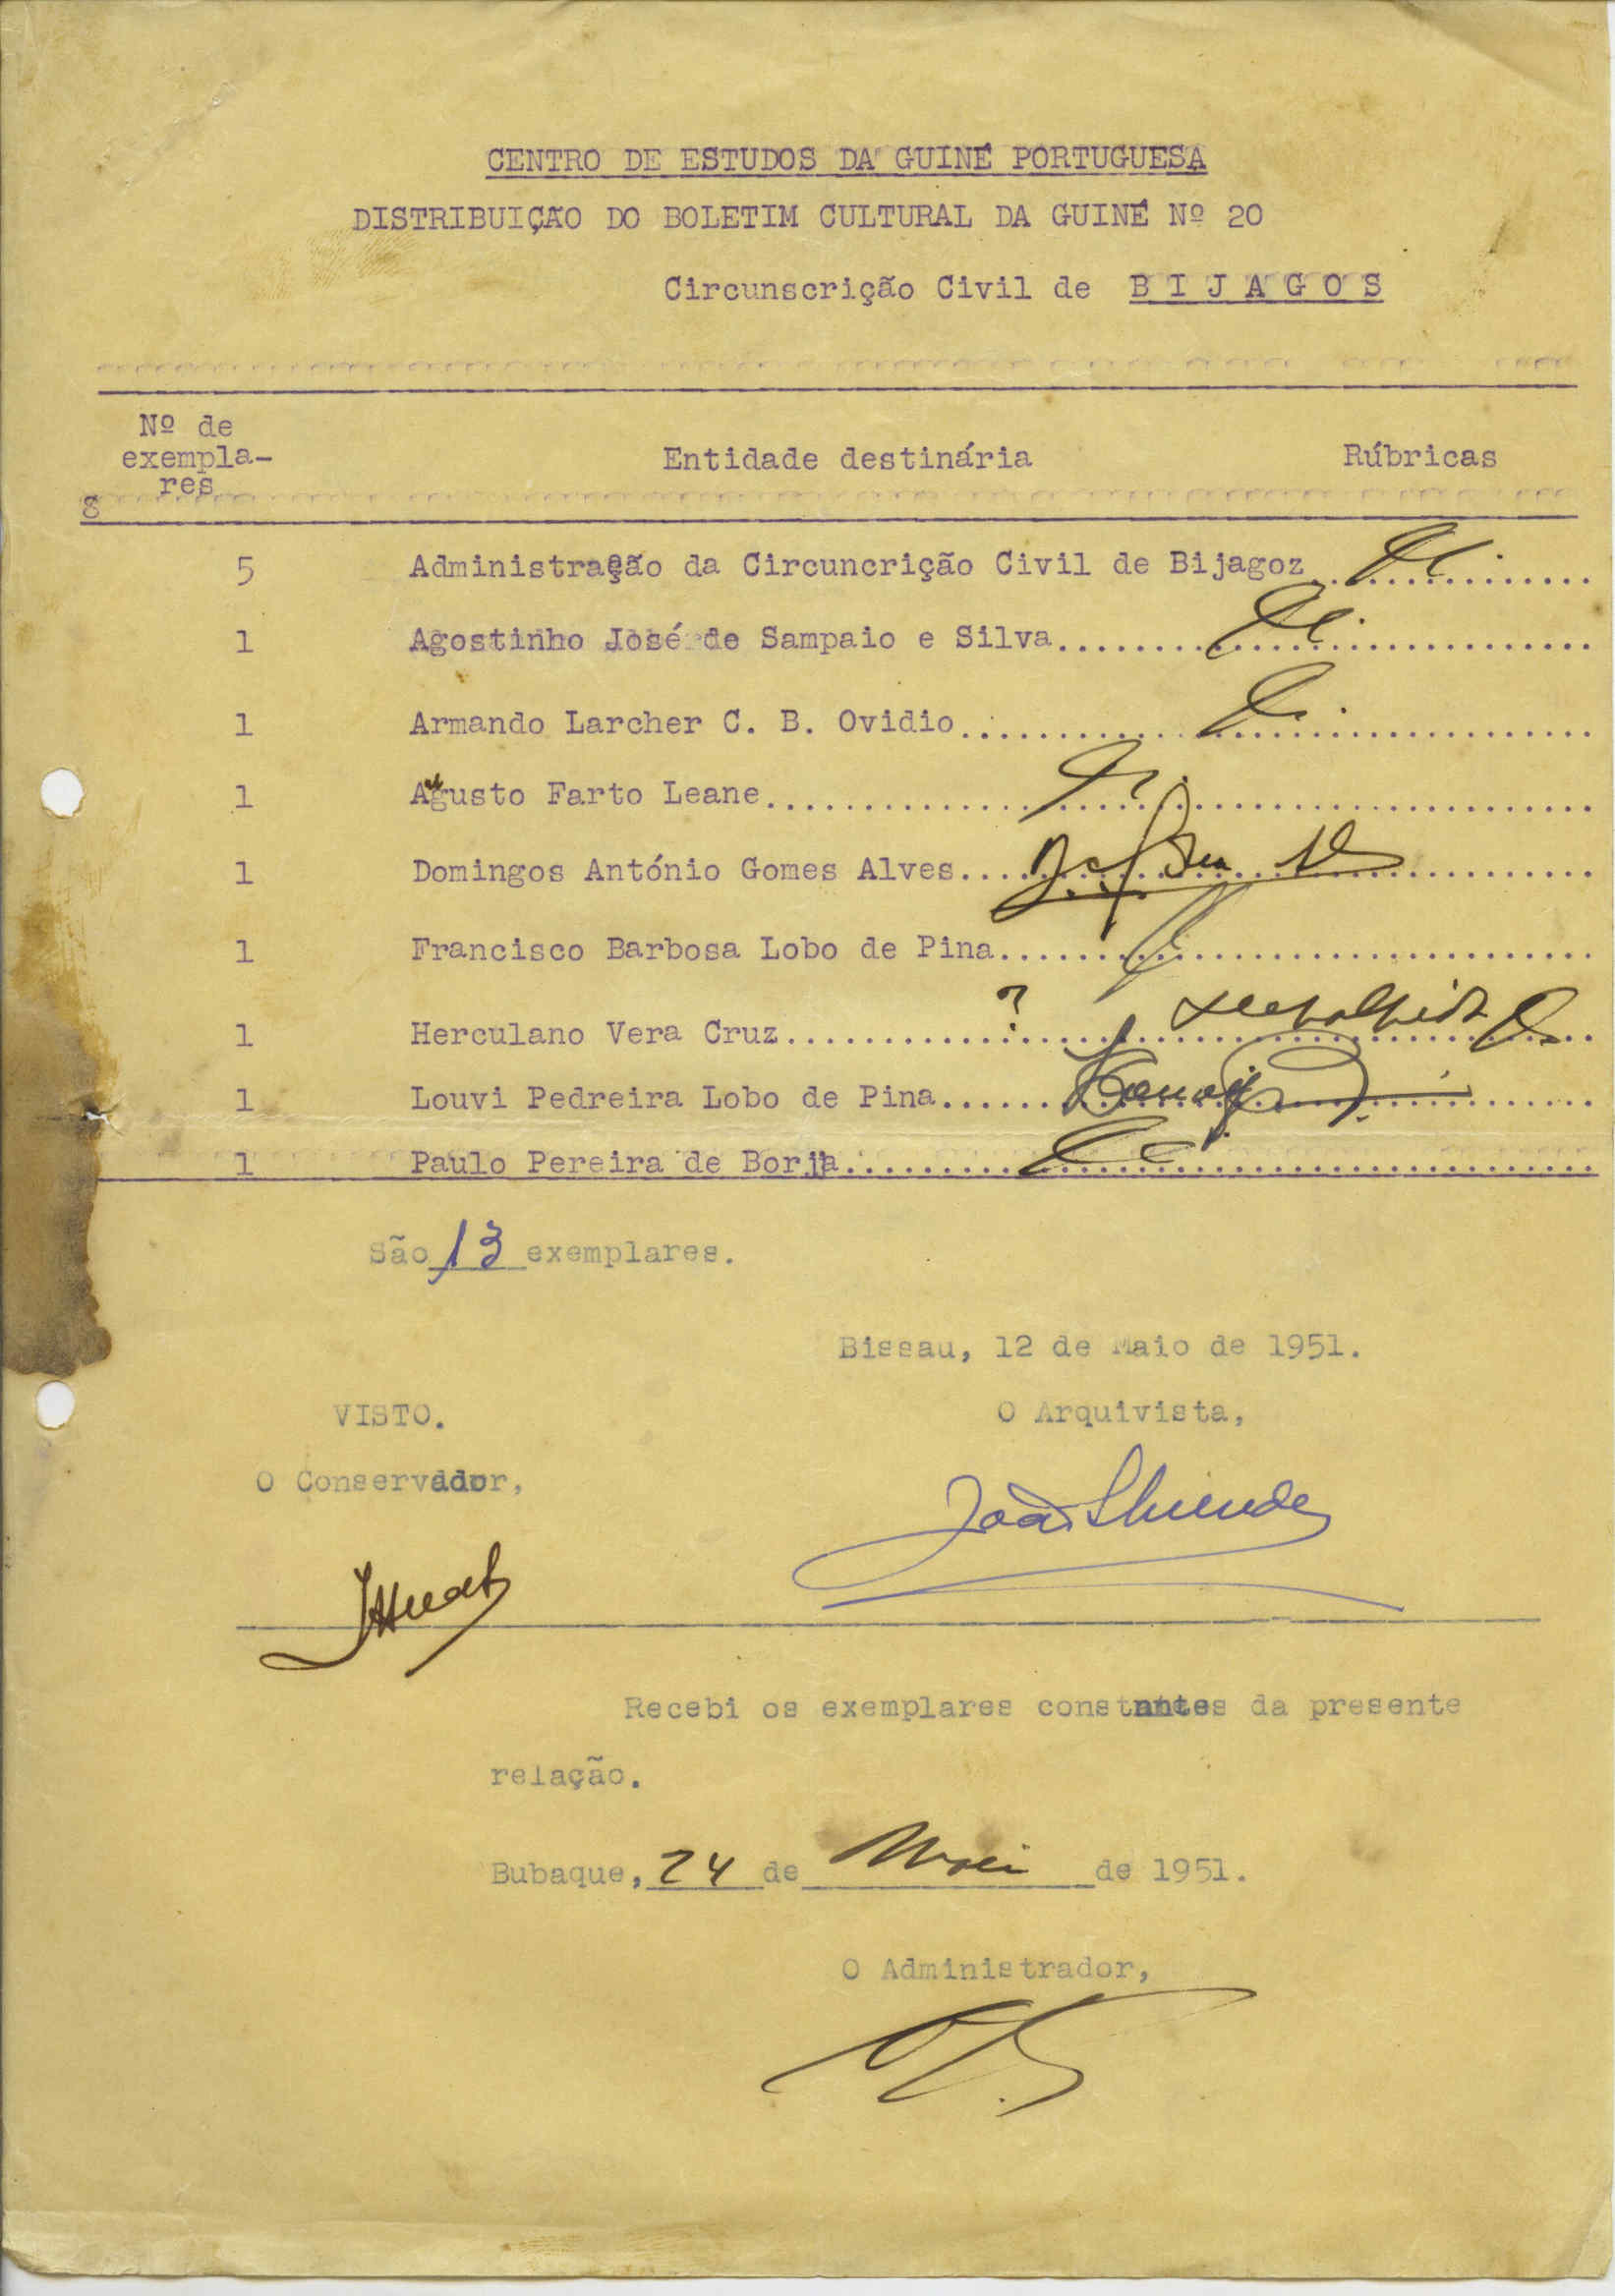 CENTRO DE ESTUDOS DA GUINÉ PORTUGUESA
DISTRIBUIÇÃO DO BOLETIM CULTURAL DA GUINÉ Nº 20
Circunscrição Civil de B I J A G O S
Nº de
exempla-
res
Entidade destinária
Rúbricas
8
5 Administração da Circuncrição Civil de Bijagoz
1 Agostinho José de Sampaio e Silva
1 Armando Larcher C. B. Ovidio
1 Augusto Farto Leane
1 Domingos António Gomes Alves
1 Francisco Barbosa Lobo de Pina
1 Herculano Vera Cruz ?
1 Louvi Pedreira Lobo de Pina
1 Paulo Pereira de Borja
São 13 exemplares.
Bissau, 12 de Maio de 1951.
VISTO. O Arquivista,
O Conservador,
Recebi os exemplares constantes da presente
relação.
Bubaque, 24 de Maio de 1951.
O Administrador,